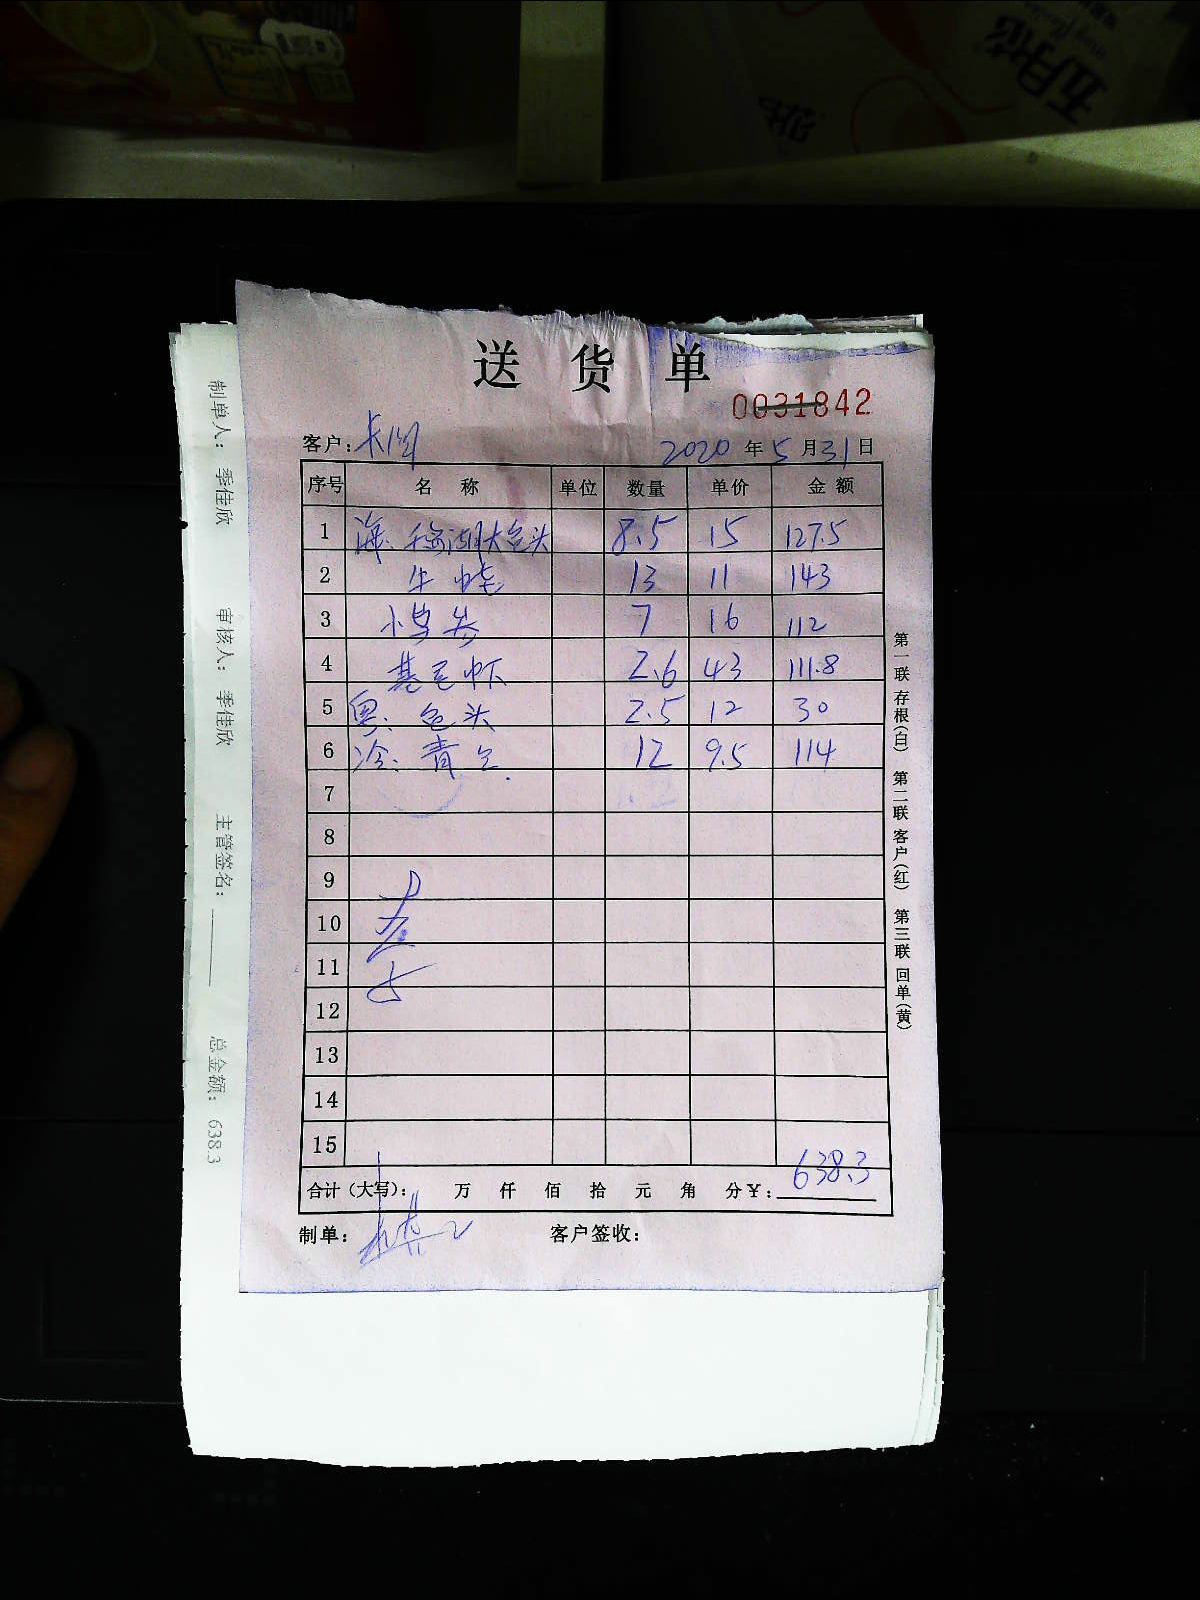 送货单
0031842
客户: 长润 2020年5月31日
序号 名称 单位 数量 单价 金额
1 海. 千岛湖大包头 8.5 15 127.5
2 牛蛙 13 11 143
3 小 7 16 112
4 基尾虾 2.6 43 111.8
5 粤. 包头 2.5 12 30
6 冷. 青 12 9.5 114
7
8
9
10
11
12
13
14
15
合计(大写): 万 仟 佰 拾 元 角 分¥: 638.3
制单: 客户签收:
第一联 存根(白) 第二联 客户(红) 第三联 回单(黄)
制单人: 季佳欣 审核人: 季佳欣 主管签名: 总金额: 638.3